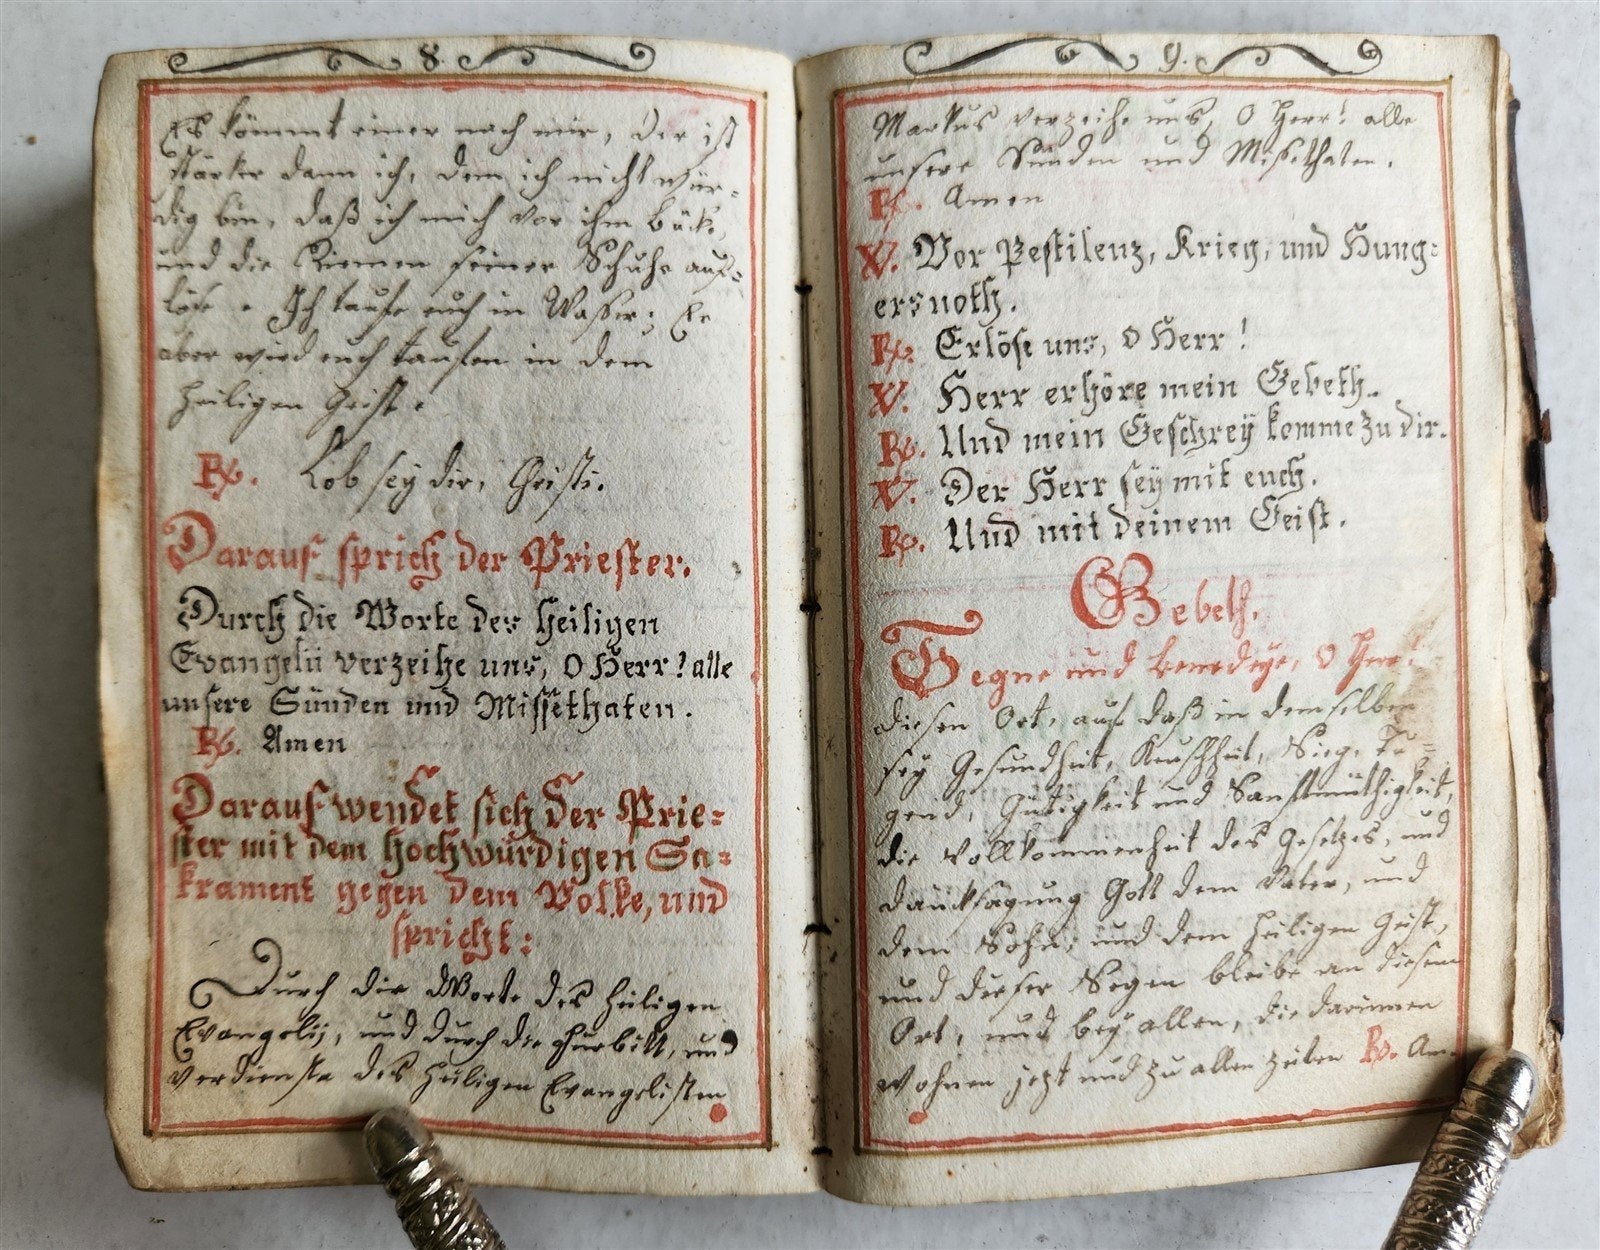 8.
Es kömmt einer nach mir, der ist
stärker dann ich, dem ich nicht wür-
dig bin, daß ich mich vor ihm bücke,
und die Riemen seiner Schuhe auf-
löse. Ich taufe euch in Wasser; Er
aber wird euch taufen in dem
heiligen Geist.
R. Lob sey dir, Christi.
Darauf sprich der Priester.
Durch die Worte des heiligen
Evangelii verzeihe uns, O Herr! alle
unsere Sünden und Missethaten.
R. Amen
Darauf wendet sich der Prie-
ster mit dem hochwürdigen Sa-
krament gegen dem Volke, und
spricht:
Durch die Worte des heiligen
Evangelij, und durch die Furbitt, und
verdienste des heiligen Evangelisten
9.
Markus verzeihe uns, O Herr! alle
unsere Sünden und Missethaten.
R. Amen
V. Vor Pestilenz, Krieg, und Hung-
ersnoth.
R. Erlöse uns, O Herr!
V. Herr erhöre mein Gebeth.
R. Und mein Geschrey komme zu dir.
V. Der Herr sey mit euch.
R. Und mit deinem Geist.
Gebeth.
Segne und benedeye, O Herr!
diesen Ort, auf daß in demselben
sey Gesundheit, Keuschheit, Sieg, Tu-
gend, Gütigkeit und Sanftmüthigkeit,
die Vollkommenheit des Gesetzes, und
dancksagung Gott dem Vater, und
dem Sohn, und dem heiligen Geist,
und dieser Segen bleibe an diesem
Ort, und bey allen, die darinnen
wohnen jetzt und zu allen zeiten R. Am.